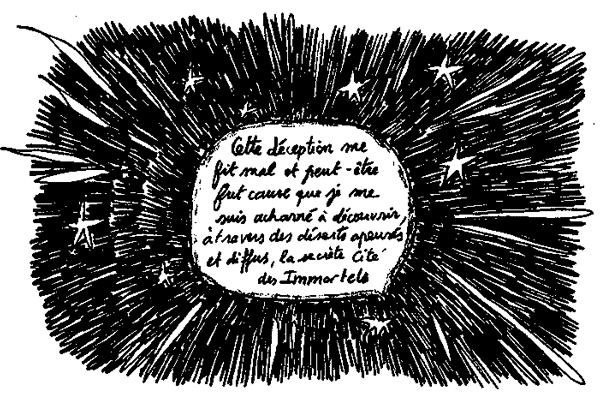 Cette déception me
fit mal et peut-être
fut cause que je me
suis acharné à découvrir,
à travers des déserts apeurés
et diffus, la secrète Cité
des Immortels